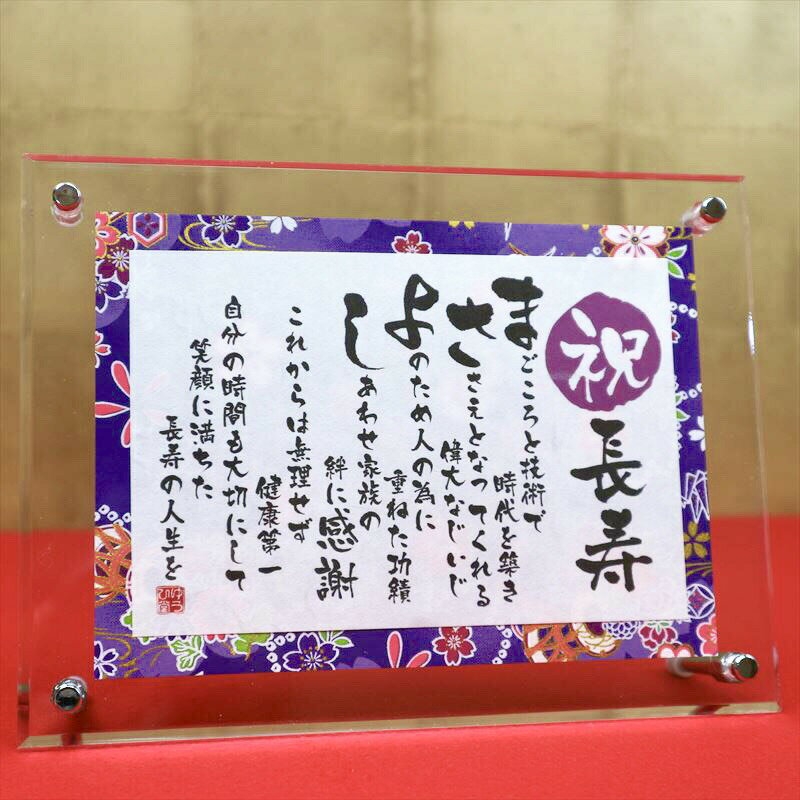 祝
長寿
まごころと技術で
時代を築き
ささえとなってくれる
偉大なじいじ
よのため人の為に
重ねた功績
しあわせ家族の
絆に感謝
これからは無理せず
健康第一
自分の時間も大切にして
笑顔に満ちた
長寿の人生を
ゆうび堂